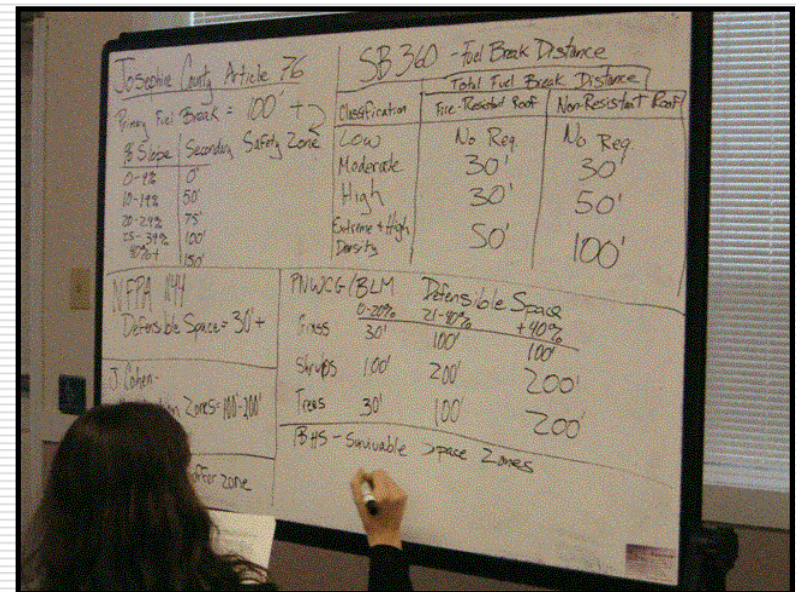 Josephine County Article 76
Primary Fuel Break = 100' +
% Slope | Secondary Safety Zone
0-9% 0'
10-19% 50'
20-24% 75'
25-39% 100'
40%+ 150'
SB 360 - Fuel Break Distance
Total Fuel Break Distance
Classification Fire-Resistant Roof Non-Resistant Roof
Low No Req. No Req.
Moderate 30' 30'
High 30' 50'
Extreme + High
Density 50' 100'
NFPA 1144
Defensible Space = 30'+
J. Cohen-
Zones = 100'-200'
Zone
PNWCG/BLM Defensible Space
0-20% 21-40% +40%
Grass 30' 100' 100'
Shrubs 100' 200' 200'
Trees 30' 100' 200'
IBHS - Survivable Space Zones